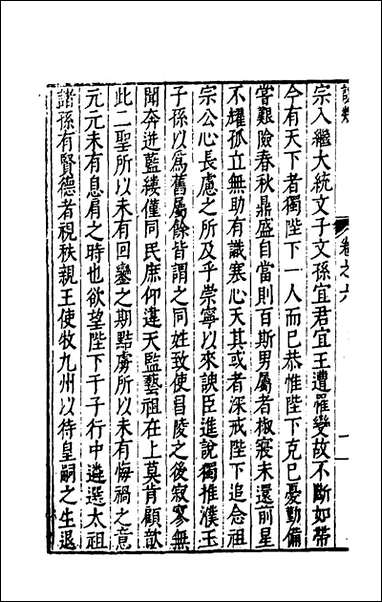 宗入繼大統文子文孫宜君宜王遭罹變故不斷如帶
今有天下者獨陛下一人而已恭惟陛下克已憂勤備
嘗艱險春秋鼎盛自當則百斯男屬者椒寢未還前星
不耀孤立無助有識寒心天其或者深戒陛下追念祖
宗公心長慮之所及乎崇寧以來諛臣進說獨推濮王
子孫以爲舊屬餘皆謂之同姓致使昌陵之後寂寥無
聞奔迸藍縷僅同民庶仰違天監藝祖在上莫肯顧歆
此二聖所以未有回鑾之期黠虜所以未有悔禍之意
元元未有息肩之時也欲望陛下于子行中遴選太祖
諸孫有賢德者視秩親王使牧九州以待皇嗣之生退
卷之六